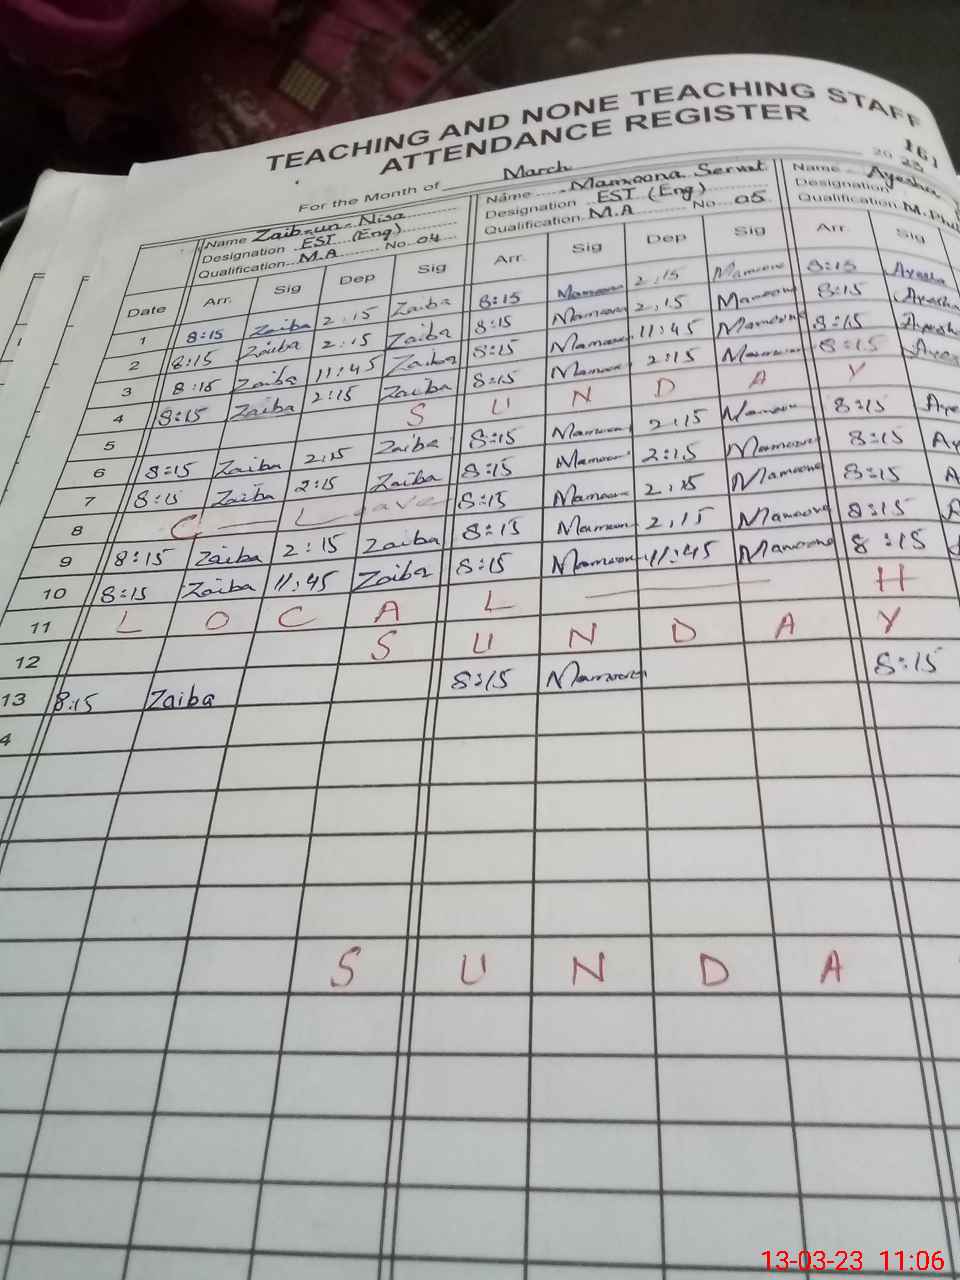 TEACHING AND NONE TEACHING STAFF
ATTENDANCE REGISTER
161
For the Month of March 2023
Name Zaib-un-Nisa
Designation EST (Eng)
Qualification M.A No. 04
Name Mamoona Servat
Designation EST (Eng)
Qualification M.A No 05
Name Ayesha
Designation
Qualification M.Phil
Date Arr. Sig Dep Sig Arr. Sig Dep Sig Arr. Sig
1 8:15 Zaiba 2:15 Zaiba 8:15 Mamoona 2:15 Mamoona 8:15 Ayesha
2 8:15 Zaiba 2:15 Zaiba 8:15 Mamoona 2:15 Mamoona 8:15 Ayesha
3 8:15 Zaiba 11:45 Zaiba 8:15 Mamoona 11:45 Mamoona 8:15 Ayesh
4 8:15 Zaiba 2:15 Zaiba 8:15 Mamoona 2:15 Mamoona 8:15 Ayes
5 S U N D A Y
6 8:15 Zaiba 2:15 Zaiba 8:15 Mamoona 2:15 Mamoona 8:15 Aye
7 8:15 Zaiba 2:15 Zaiba 8:15 Mamoona 2:15 Mamoona 8:15 Ay
8 C — Leave 8:15 Mamoona 2:15 Mamoona 8:15 A
9 8:15 Zaiba 2:15 Zaiba 8:15 Mamoona 2:15 Mamoona 8:15 A
10 8:15 Zaiba 11:45 Zaiba 8:15 Mamoona 11:45 Mamoona 8:15
11 L O C A L — H
12 S U N D A Y
13 8:15 Zaiba 8:15 Mamoona 8:15
4
S U N D A
13-03-23 11:06